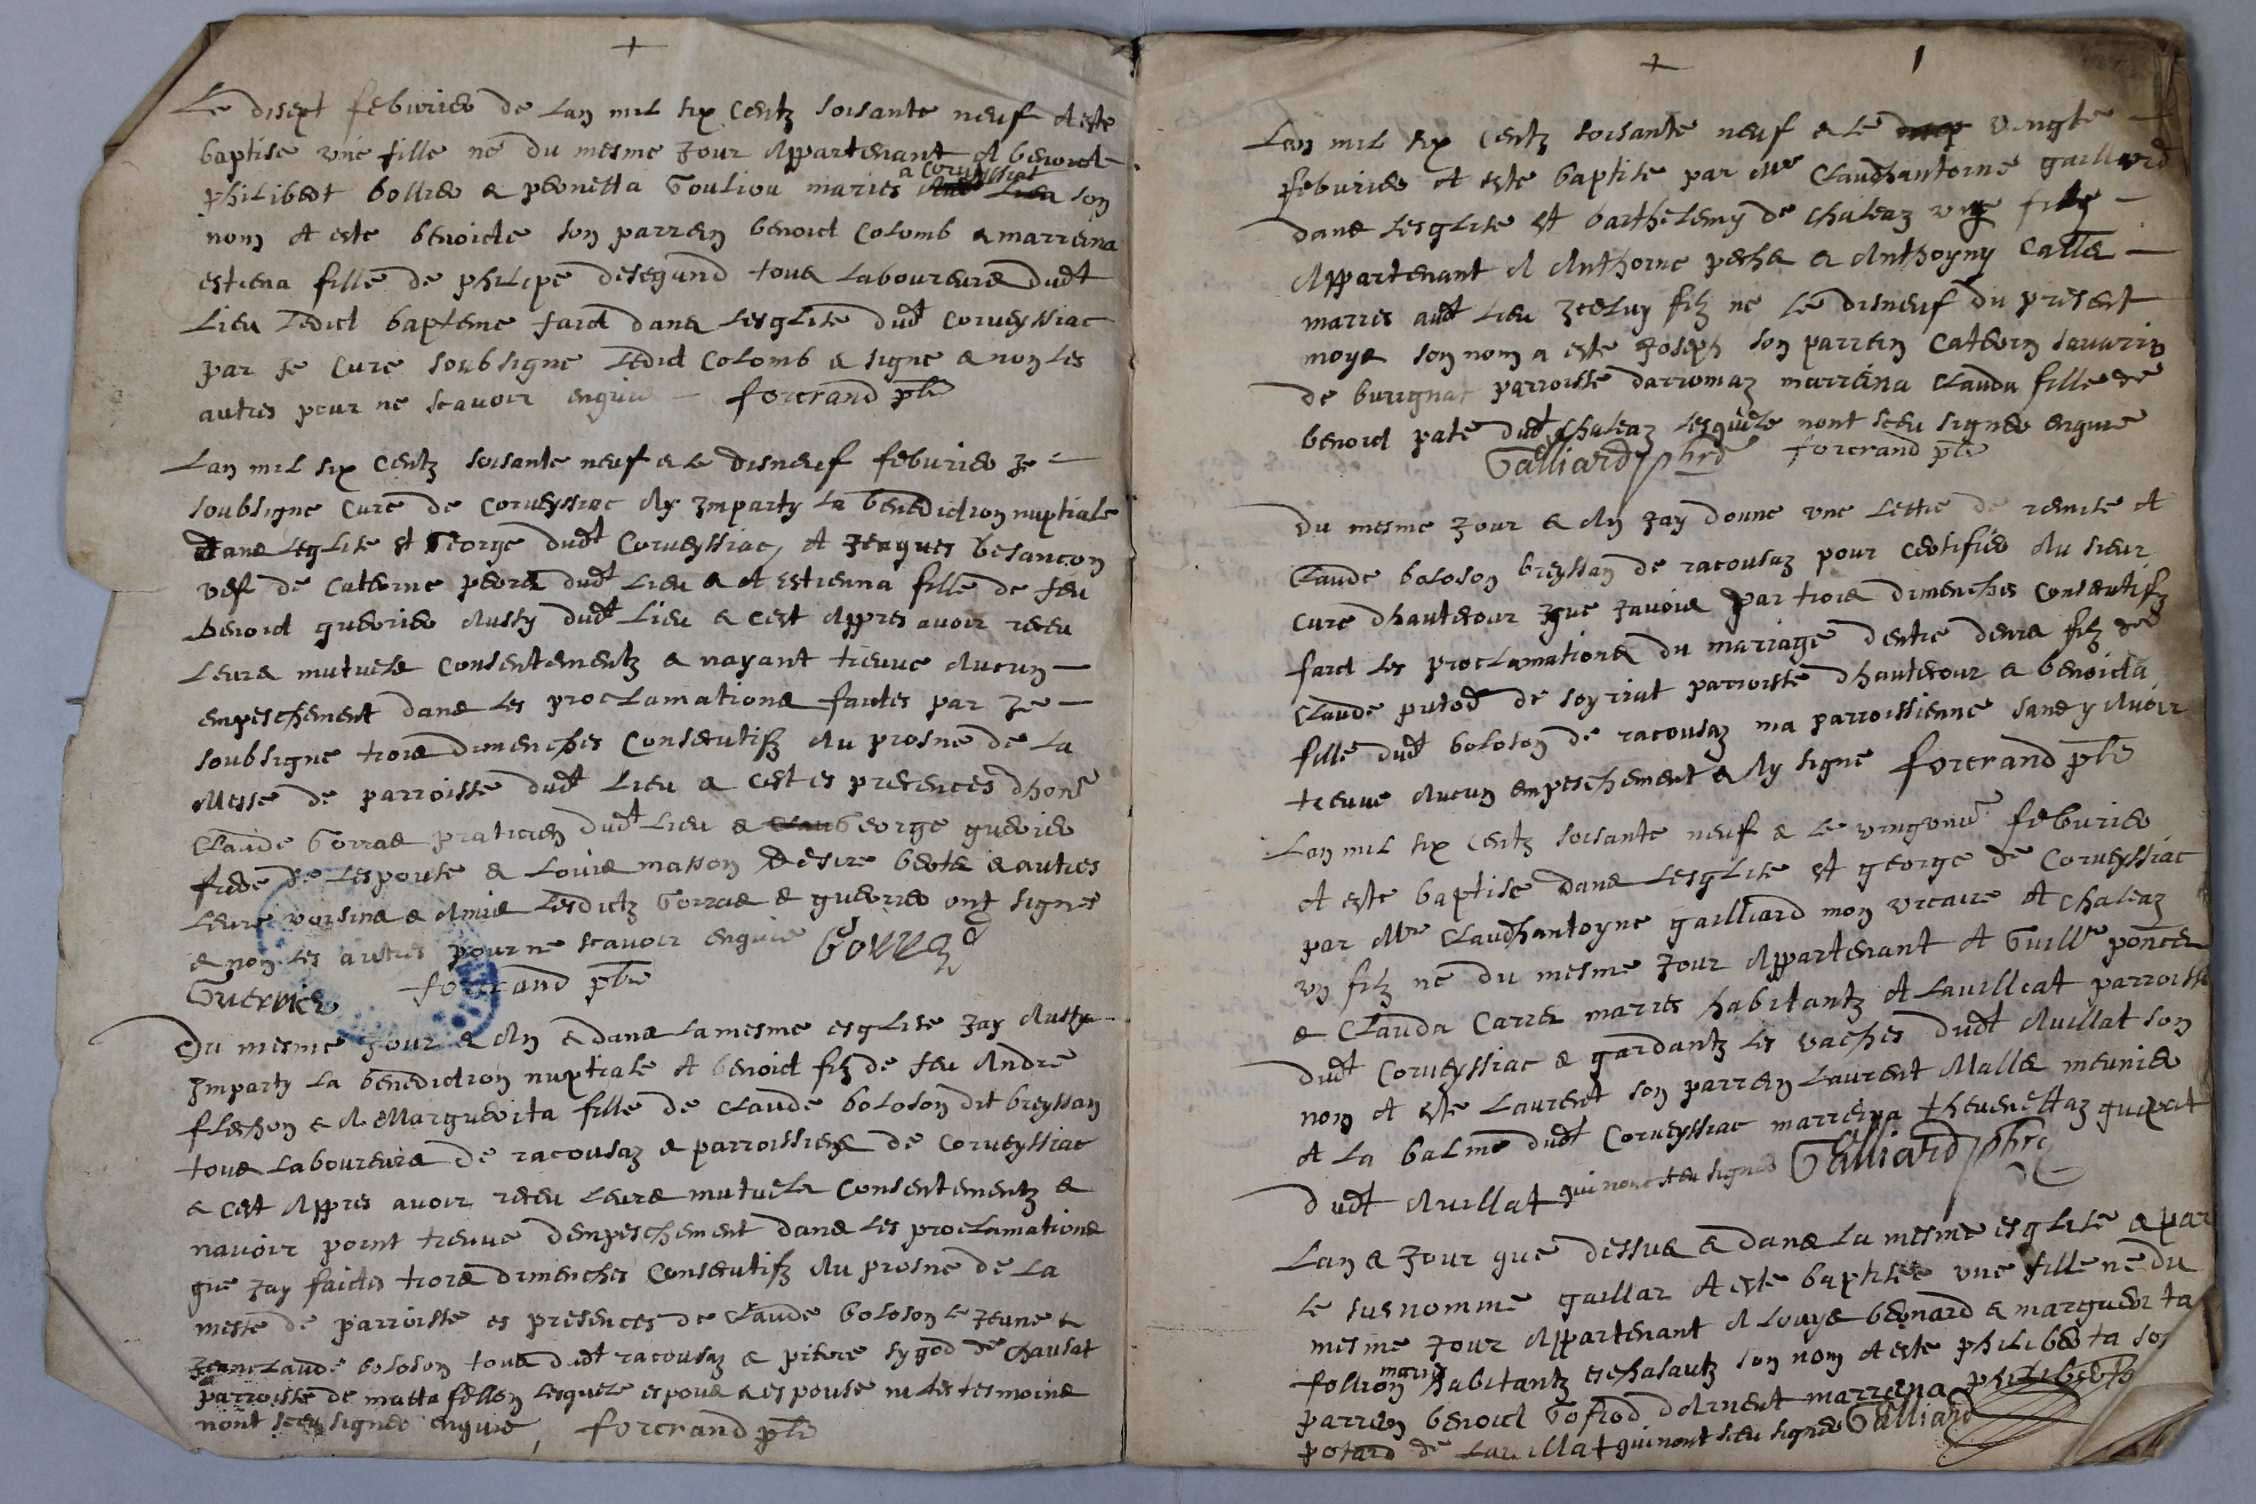 Le disept febvrier de Lan mil six centz soisante neuf A este
baptise une fille ne du mesme Jour Appartenant A benoict
philibert bollier & pernetta Gouliou maries a Corveyssiat son
nom A este benoicte son parrein benoict Colomb & marreina
estiena fille de philipe desegund tous Laboureurs dudt
Lieu Ledict bapteme faict dans Lesglise dudt Corveyssiac
par Je Cure soubsigne Ledict Colomb & signe & non les
autres pour ne scavoir enquis forcrand pbr
Lan mil six Centz soisante neuf & le disneuf febvrier Je
soubsigne Cure de Corveyssiac Ay Imparty La benediction nuptiale
dans Leglise st George dudt Corveyssiac, A Jeaques besancon
vef de Caterine dudt Lieu & A Estienna fille de feu
benoict guerrier Aussy dudt Lieu & cest Appres avoir receu
Leurs mutuels Consentementz & nayant treuve Aucun
empeschement dans les proclamations faictes par Je
soubsigne trois dimenches Consecutifz Au prosne de La
Messe de parroisse dudt Lieu & cest es presences dhone
Claude Gorras praticien dudt Lieu & George guerier
frere de Lespouse & Louis masson desire & autres
Leurs voisins & Amis Lesdictz Gorras & guerrier ont signes
& non les autres pour ne scavoir enquis Gorraz
Guerrier forcrand pbr
Du mesme Jour & An & dans La mesme esglise Jay Aussy
Imparty La benediction nuptiale A benoict filz de feu Andre
flechon & A Marguerita fille de Claude boloson dit breyssan
tous Laboureurs de racousaz & parroissiens de Corveyssiac
& cest Appres avoir receu Leurs mutuels Consentementz &
navoir point treuve dempeschement dans les proclamations
que Jay faictes trois dimenches Consecutifz Au prosne de La
messe de parroisse es presences de Claude boloson le Jeune &
Jeanclaude boloson tous dudt racousaz & pierre sygod de Chausat
parroisse de mattafellon Lesquels espoux & espouse ni les tesmoins
nont sceu signer enquis, forcrand pbr
1
Lan mil six Centz soisante neuf & le vingte
febvrier A este baptise par Mre Claudhantoine gaillard
dans Lesglise st barthelemy de Chaleaz
Appartenant A Anthoine & Anthoyny
maries audt Lieu Iceluy filz ne le disneuf du present
moys son nom a este Joseph son parrein Caterin savarin
de burignat parroisse darromaz marreina Clauda fille de
benoict pate dudt Chaleaz Lesquels nont sceu signer enquis
Galliard pbre forcrand pbr
Du mesme Jour & An Jay donne une Lettre de remise A
Claude boloson breyssan de racousaz pour certifier Au sieur
Cure dhautecour que Javois par trois dimenches Consecutifz
faict les proclamations du mariage dentre denis filz de
Claude putod de soyriat parroisse dhautecour & benoicta
fille dudt boloson de racousaz ma parroissienne sans y Avoir
treuve Aucun empeschement & Ay signe forcrand pbr
Lan mil six Centz soisante neuf & le vingune febvrier
A este baptise dans Lesglise st george de Corveyssiac
par Mre Claudhantoyne gailliard mon vicaire A Chaleaz
un filz ne du mesme Jour Appartenant A Guille poncet
& Clauda Carrer maries habitantz A Lavilleat parroisse
dudt Corveyssiac & gardantz les vaches dudt Avillat son
nom A este Laurent son parrein Laurent Malle meunier
A La balme dudt Corveyssiac marreina thevenettaz
dudt Avillat qui nont sceu signer Galliard pbre
Lan & Jour que dessus & dans La mesme esglise & par
le susnomme gaillar A este baptisee une fille ne du
mesme Jour Appartenant A Louys bernard & marguerita
follion maries habitantz son nom A este philiberta son
parrein benoict Gofrod marreina philiberta
potard de Lavillat qui nont sceu signer Galliard